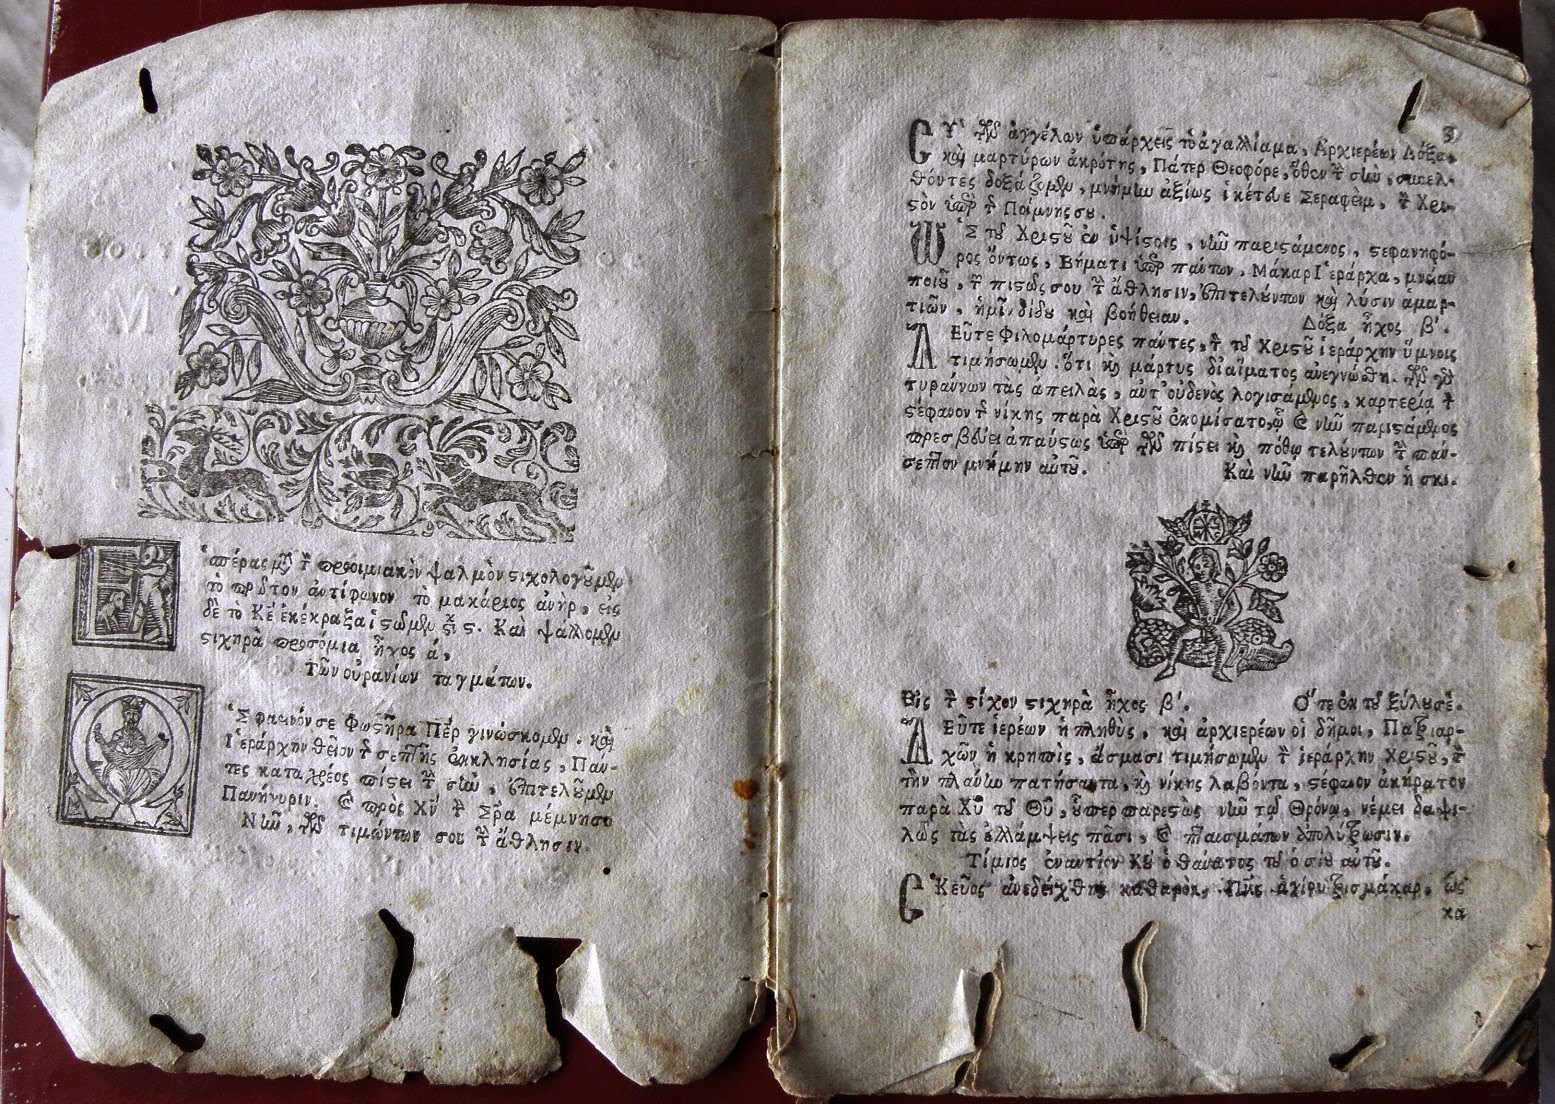 σπέρας μ τ προοιμιακὸν ψαλμὸν ςιχολογοῦμεν
τὸ πρῶτον ἀντίφωνον τὸ μακάριος ἀνὴρ, εἰς
δὲ τὸ Κέ ἐκέκραξα ἱςῶμεν ς. Καὶ ψάλλομεν
ςιχηρὰ προσόμια ἦχος ά,
Τῶν οὐρανίων ταγμάτων.
Σ φαεινόν σε Φωςῆρα Πέρ γινώσκομεν. καὶ
Ἱεράρχην θεῖον τ σεπτῆς ἐκκλησίας, Πάν-
τες καταχρέος πίςει τ σὴν, ἐπιτελοῦμεν
Πανήγυριν. πρὸς Χν τ Σρα μέμνησο
Νῦν, τῶν τιμώντων σου τ ἄθλησιν.
3
ΣΥ τῶν ἀγγέλων ὑπάρχεις τὸ ἀγαλλίαμα, Ἀρχιερέων Δόξα,
καὶ μαρτύρων ἀκρότης, Πάτερ Θεοφόρε, ὅθεν τ σὴν, συνελ-
θόντες δοξάζομεν, μνήμην ἀξίως ἱκέτευε Σεραφεὶμ, τ Χρι-
ςὸν ὑπὲρ τ Ποίμνης σου.
ΩΣ τοῦ Χριςοῦ ἐν ὑψίςοις, νῦν παριςάμενος, ςεφανηφό-
ρος ὄντως, Βήματι ὑπὲρ πάντων, Μάκαρ Ἱεράρχα, μνείαν
ποιοῦ, τ πιςῶς σου τ ἄθλησιν, ἐπιτελούντων καὶ λύσιν ἁμαρ-
τιῶν, ἡμῖν δίδου καὶ βοήθειαν. Δόξα ἦχος β΄.
ΔΕῦτε Φιλομάρτυρες πάντες, τ τοῦ Χριςοῦ ἱεράρχην ὕμνοις
τιμήσωμεν. ὅτι κὴ μάρτυς δι αἵματος ἀνεγνώσθη.
τυράννων τὰς ἀπειλὰς, ἀντ οὐδενὸς λογισάμενος, καρτερίᾳ τ
ςέφανον τ νίκης παρὰ Χριςοῦ ἐκομίσατο, ᾧ νῦν παριςάμενος
πρεσβεύει ἀπαύςως ὑπὲρ τῶν πίςει κὴ πόθῳ τελούντων τ παν-
σεπτον μνήμην αὐτοῦ. Καὶ νῦν παρῆλθεν ἡ σκι.
Εἰς τ ςίχον ςιχηρὰ ἦχος β΄. Ὅτε ἐκ τοῦ Ξύλου σὲ.
ΔΕῦτε ἱερέων ἡ πληθὺς, καὶ ἀρχιερέων οἱ δῆμοι, Πατριαρ-
χῶν ἡ κρηπὶς, ᾄσμασι τιμήσωμεν τ ἱεράρχην Χριςοῦ, τ
τὴν πλάνην πατήσαντα, κὴ νίκης λαβόντα, ςέφανον ἀκήρατον
παρὰ Χῦ τοῦ Θῦ, οὗπερ παρεςὼς νῦν τῷ Θρόνῳ, νέμει δαψι-
λῶς τὰς ἐλλάμψεις πᾶσι, πταισμάτων ἀπολύτρωσιν.
Τίμιος ἐναντίον Κῦ ὁ θάνατος τοῦ ὁσίου αὐτοῦ.
ΣΚεῦος ἀνεδείχθης καθαρὸν, μάκαρ, ὡς
κα